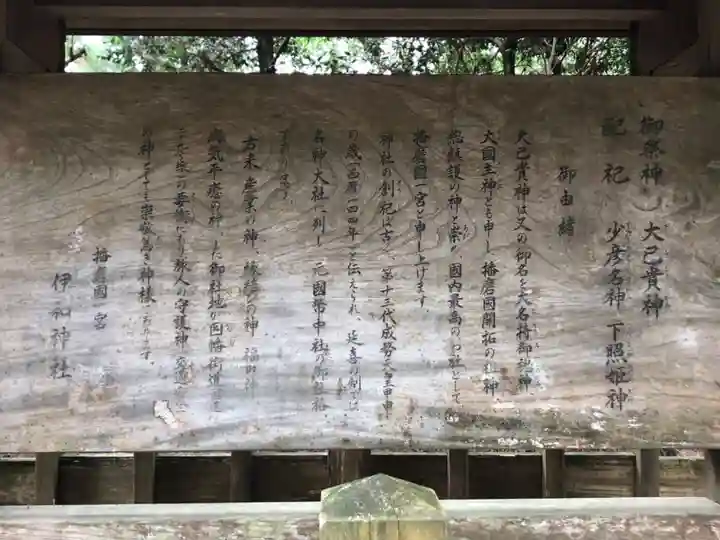 御祭神 大己貴神
配祀 少彦名神 下照姫神
御由緒
大己貴神は又の御名を大名持御魂神、
大国主神とも申し 播磨国開拓の祖神、
総鎮護の神と崇め 国内最高のお社として
播磨國一宮と申し上げます。
神社の創祀は古く、第十三代成務天皇甲申
の歳(西暦一四四年)と伝えられ、延喜の制では
名神大社に列し 元國幣中社の御社格
であります。
古来 産業の神、縁結びの神、福の神
病気平癒の神、また御社地が因幡街道
の要衝にあり旅人の守護神、交通安全
の神としても崇敬篤き神様であります。
播磨國一宮
伊和神社